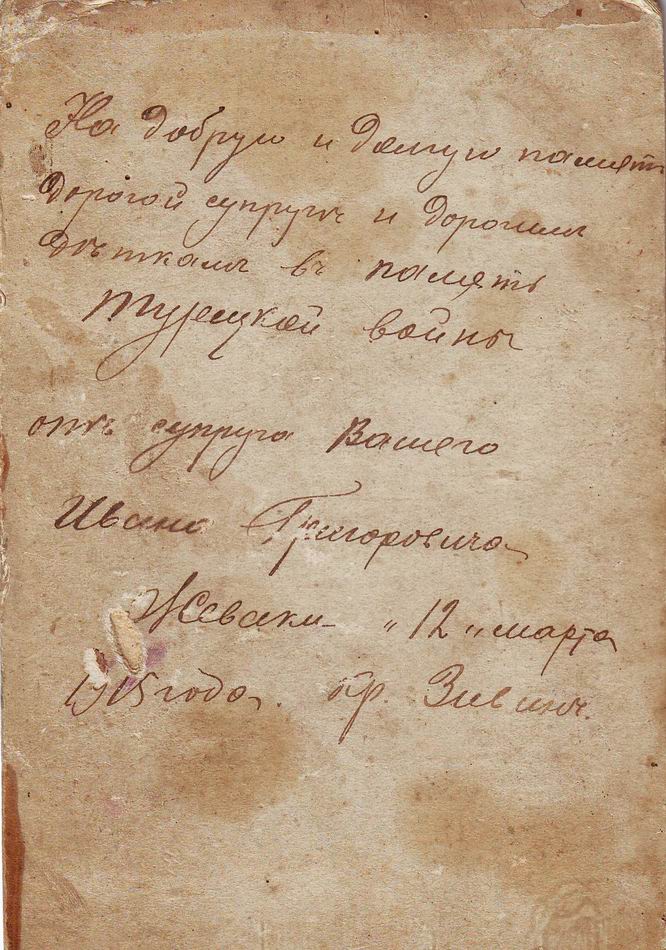 На добрую и долгую память
дорогой супруге и дорогим
дѣткамъ въ память
турецкой войны
отъ супруга Вашего
Ивана Григоровича
Жеваки „12„ марта
1915 года. кр. Зивинъ.